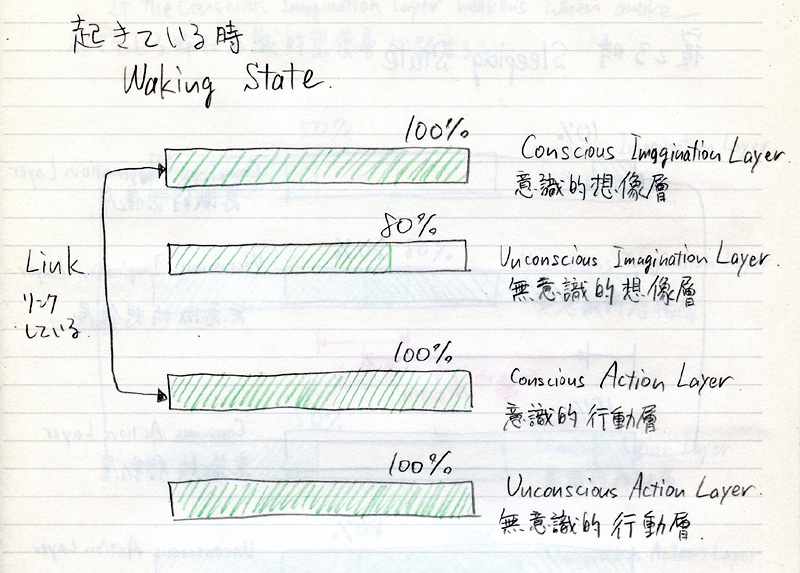 起きている時
Waking State.
100%
Conscious Imagination Layer.
意識的想像層
80%
Unconscious Imagination Layer.
無意識的想像層
Link
リンク
している.
100%
Conscious Action Layer.
意識的行動層
100%
Unconscious Action Layer.
無意識的行動層.